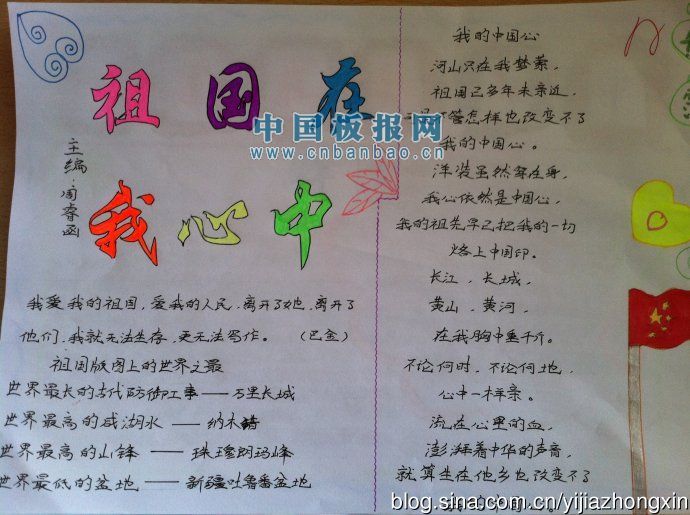 祖国在
我心中
主编:周睿函
中国板报网
www.cnbanbao.cn
我爱我的祖国,爱我的人民,离开了她,离开了
他们,我就无法生存,更无法写作。 (巴金)
祖国版图上的世界之最
世界最长的古代防御工事——万里长城
世界最高的咸湖水——纳木错
世界最高的山锋——珠穆朗玛峰
世界最低的盆地——新疆吐鲁番盆地
我的中国心
河山只在我梦萦,
祖国已多年未亲近,
不管怎样也改变不了
我的中国心。
洋装虽然穿在身,
我心依然是中国心,
我的祖先早已把我的一切
烙上中国印。
长江,长城,
黄山,黄河,
在我胸中重千斤。
不论何时,不论何地,
心中一样亲。
流在心里的血,
澎湃着中华的声音,
就算生在他乡也改变不了
blog.sina.com.cn/yijiazhongxin